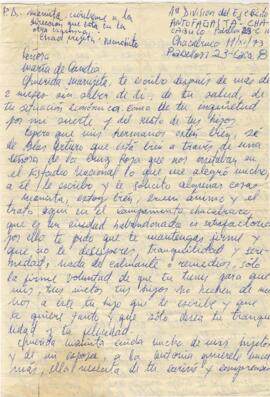 P.D. mamita, escribeme a la
dirección que está en la
otra
Iª División del Ejército
ANTOFAGASTA - CHA-
CABUCO. Pabellón 23-C
Chacabuco 19/XI/73
Pabellón 23-Casa 8
Señora
María de Candia
Querida mamita, te escribo después de más de
2 meses sin saber de ti, de tu salud, de
tu situación económica, como de tu inquietud
por mi suerte y del resto de tus hijos
Espero que mis hermanos estén bien, sé
de Blas Arturo que está bien a través de una
señora de la Cruz Roja que nos visitaba en
el Estadio Nacional lo que me alegró mucho,
a él le escribo y le solicito algunas cosas
Mamita, estoy bien, buen ánimo y el
trato aquí en el Campamento Chacabuco,
que es un ciudad abandonada es satisfactorio
por ello te pido que te mantengas firme y
que no te desesperes, tranquilidad y sere-
nidad, nada de calmante o remedios, sólo
la firme voluntad de que tu tienes para que
mis, tus nietos, tus hijos no hechen de me-
nor a este tu hijo que te escribe y que
la quiere tanto y que sólo desea tu tranqui-
lidad y tu felicidad.
Querida mamita cuida mucho de mis hijitos
y de mi esposa, a la Antonia quiérela mucho
más, ella necesita de tu cariño y comprensión